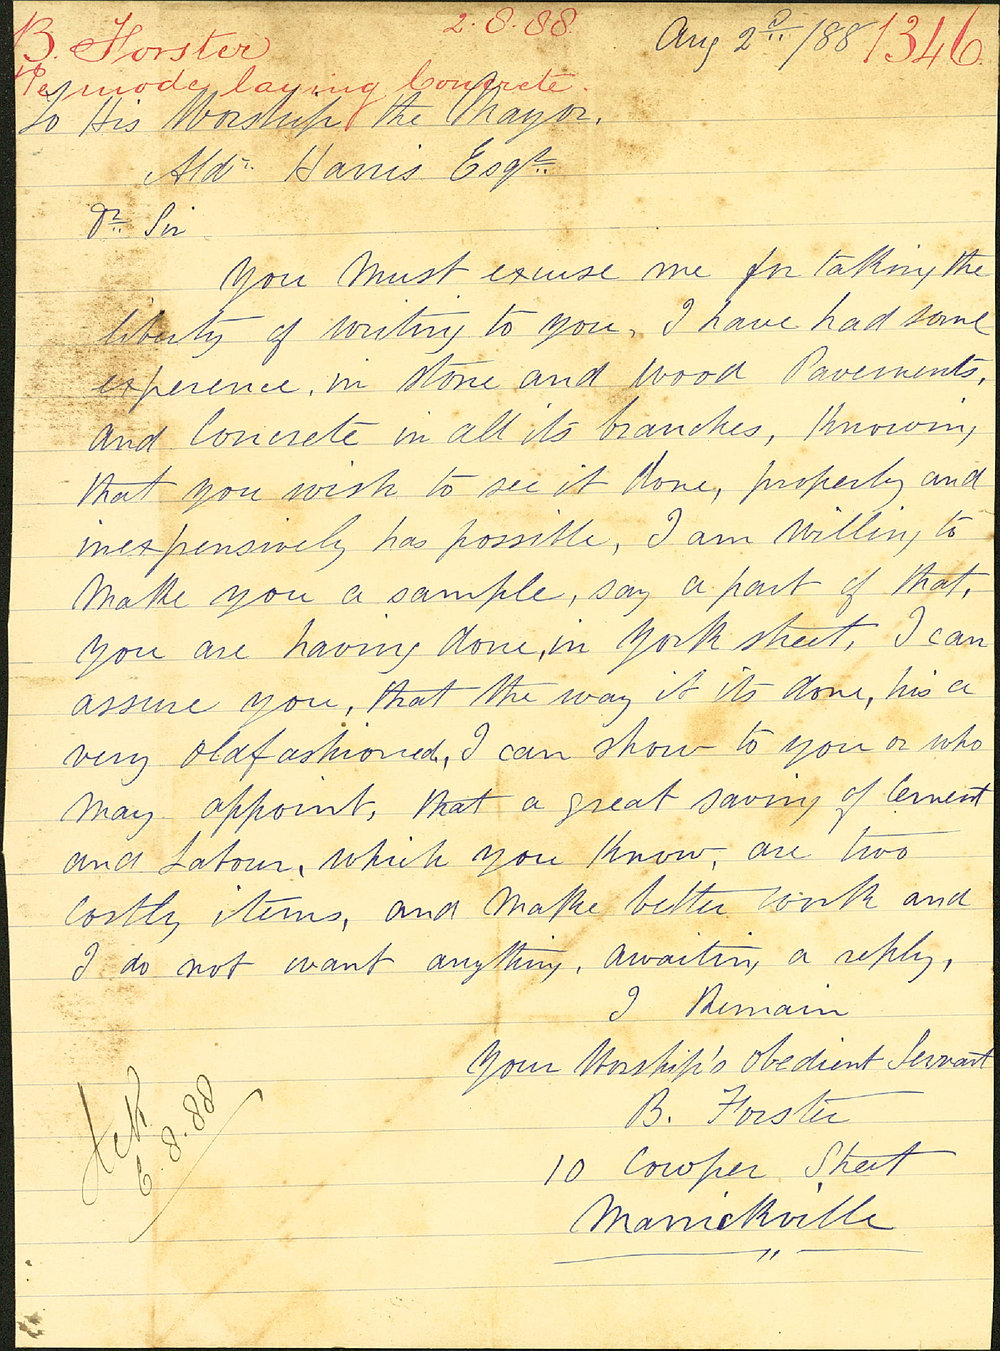 B. Forster 2.8.88. Aug 2nd /88 1346.
re mode laying Concrete.
To His Worship the Mayor.
Aldr. Harris Esqr.
Dr. Sir
You Must excuse me for taking the
liberty of writing to you, I have had some
experence, in Stone and Wood Pavements,
and Concrete in all its branches, Knowing
that you wish to see it done, properly and
inexpensively has possitle, I am Willing to
Make you a sample, say a part of that,
you are having done, in York street, I can
assure you, that the way it its done, his a
very oldfashioned, I can show to you or who
may appoint, that a great saving of Cement
and Labour, which you Know, are two
Costly items, and Make better work and
I do not want anything, awaiting a reply,
I Remain
Your Worship's Obedient Servant
B. Forster
10 Cowper Street
Marrickville
Ack
6.8.88